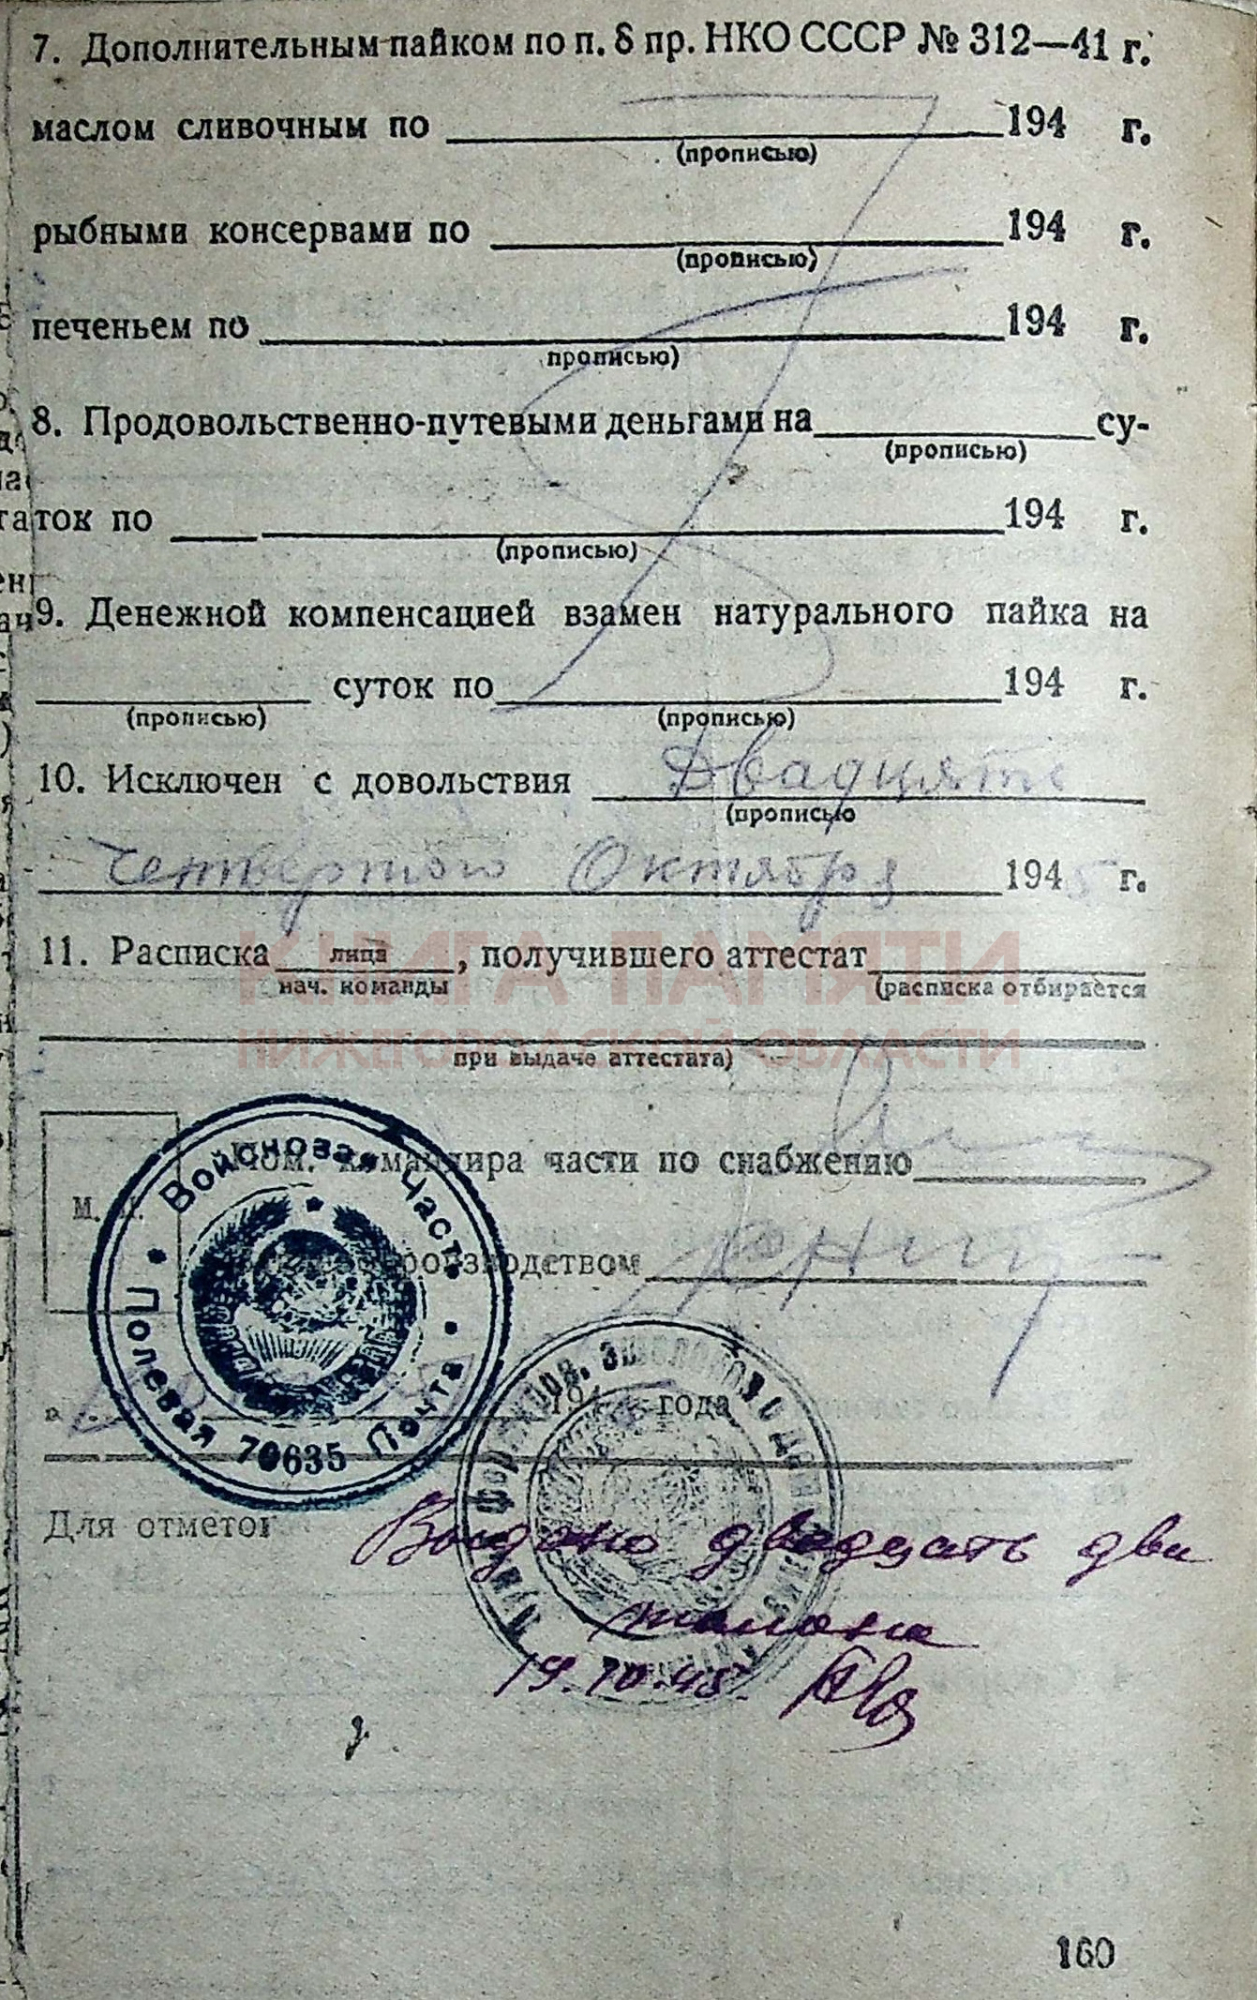 7. Дополнительным пайком по п. 8 пр. НКО СССР № 312—41 г.
маслом сливочным по 194 г.
(прописью)
рыбными консервами по 194 г.
(прописью)
печеньем по 194 г.
прописью)
8. Продовольственно-путевыми деньгами на су-
(прописью)
ток по 194 г.
(прописью)
9. Денежной компенсацией взамен натурального пайка на
суток по 194 г.
(прописью) (прописью)
10. Исключен с довольствия Двадцать
(прописью
Четвертого Октября 1945 г.
11. Расписка лица, получившего аттестат
нач. команды (расписка отбирается
при выдаче аттестата)
КНИГА ПАМЯТИ
НИЖЕГОРОДСКОЙ ОБЛАСТИ
Пом. командира части по снабжению
М.
производством
Войсковая Часть
Полевая Почта 70635
194 года
Для отметок
Выдано двадцать два
талона
19.10.45.
160